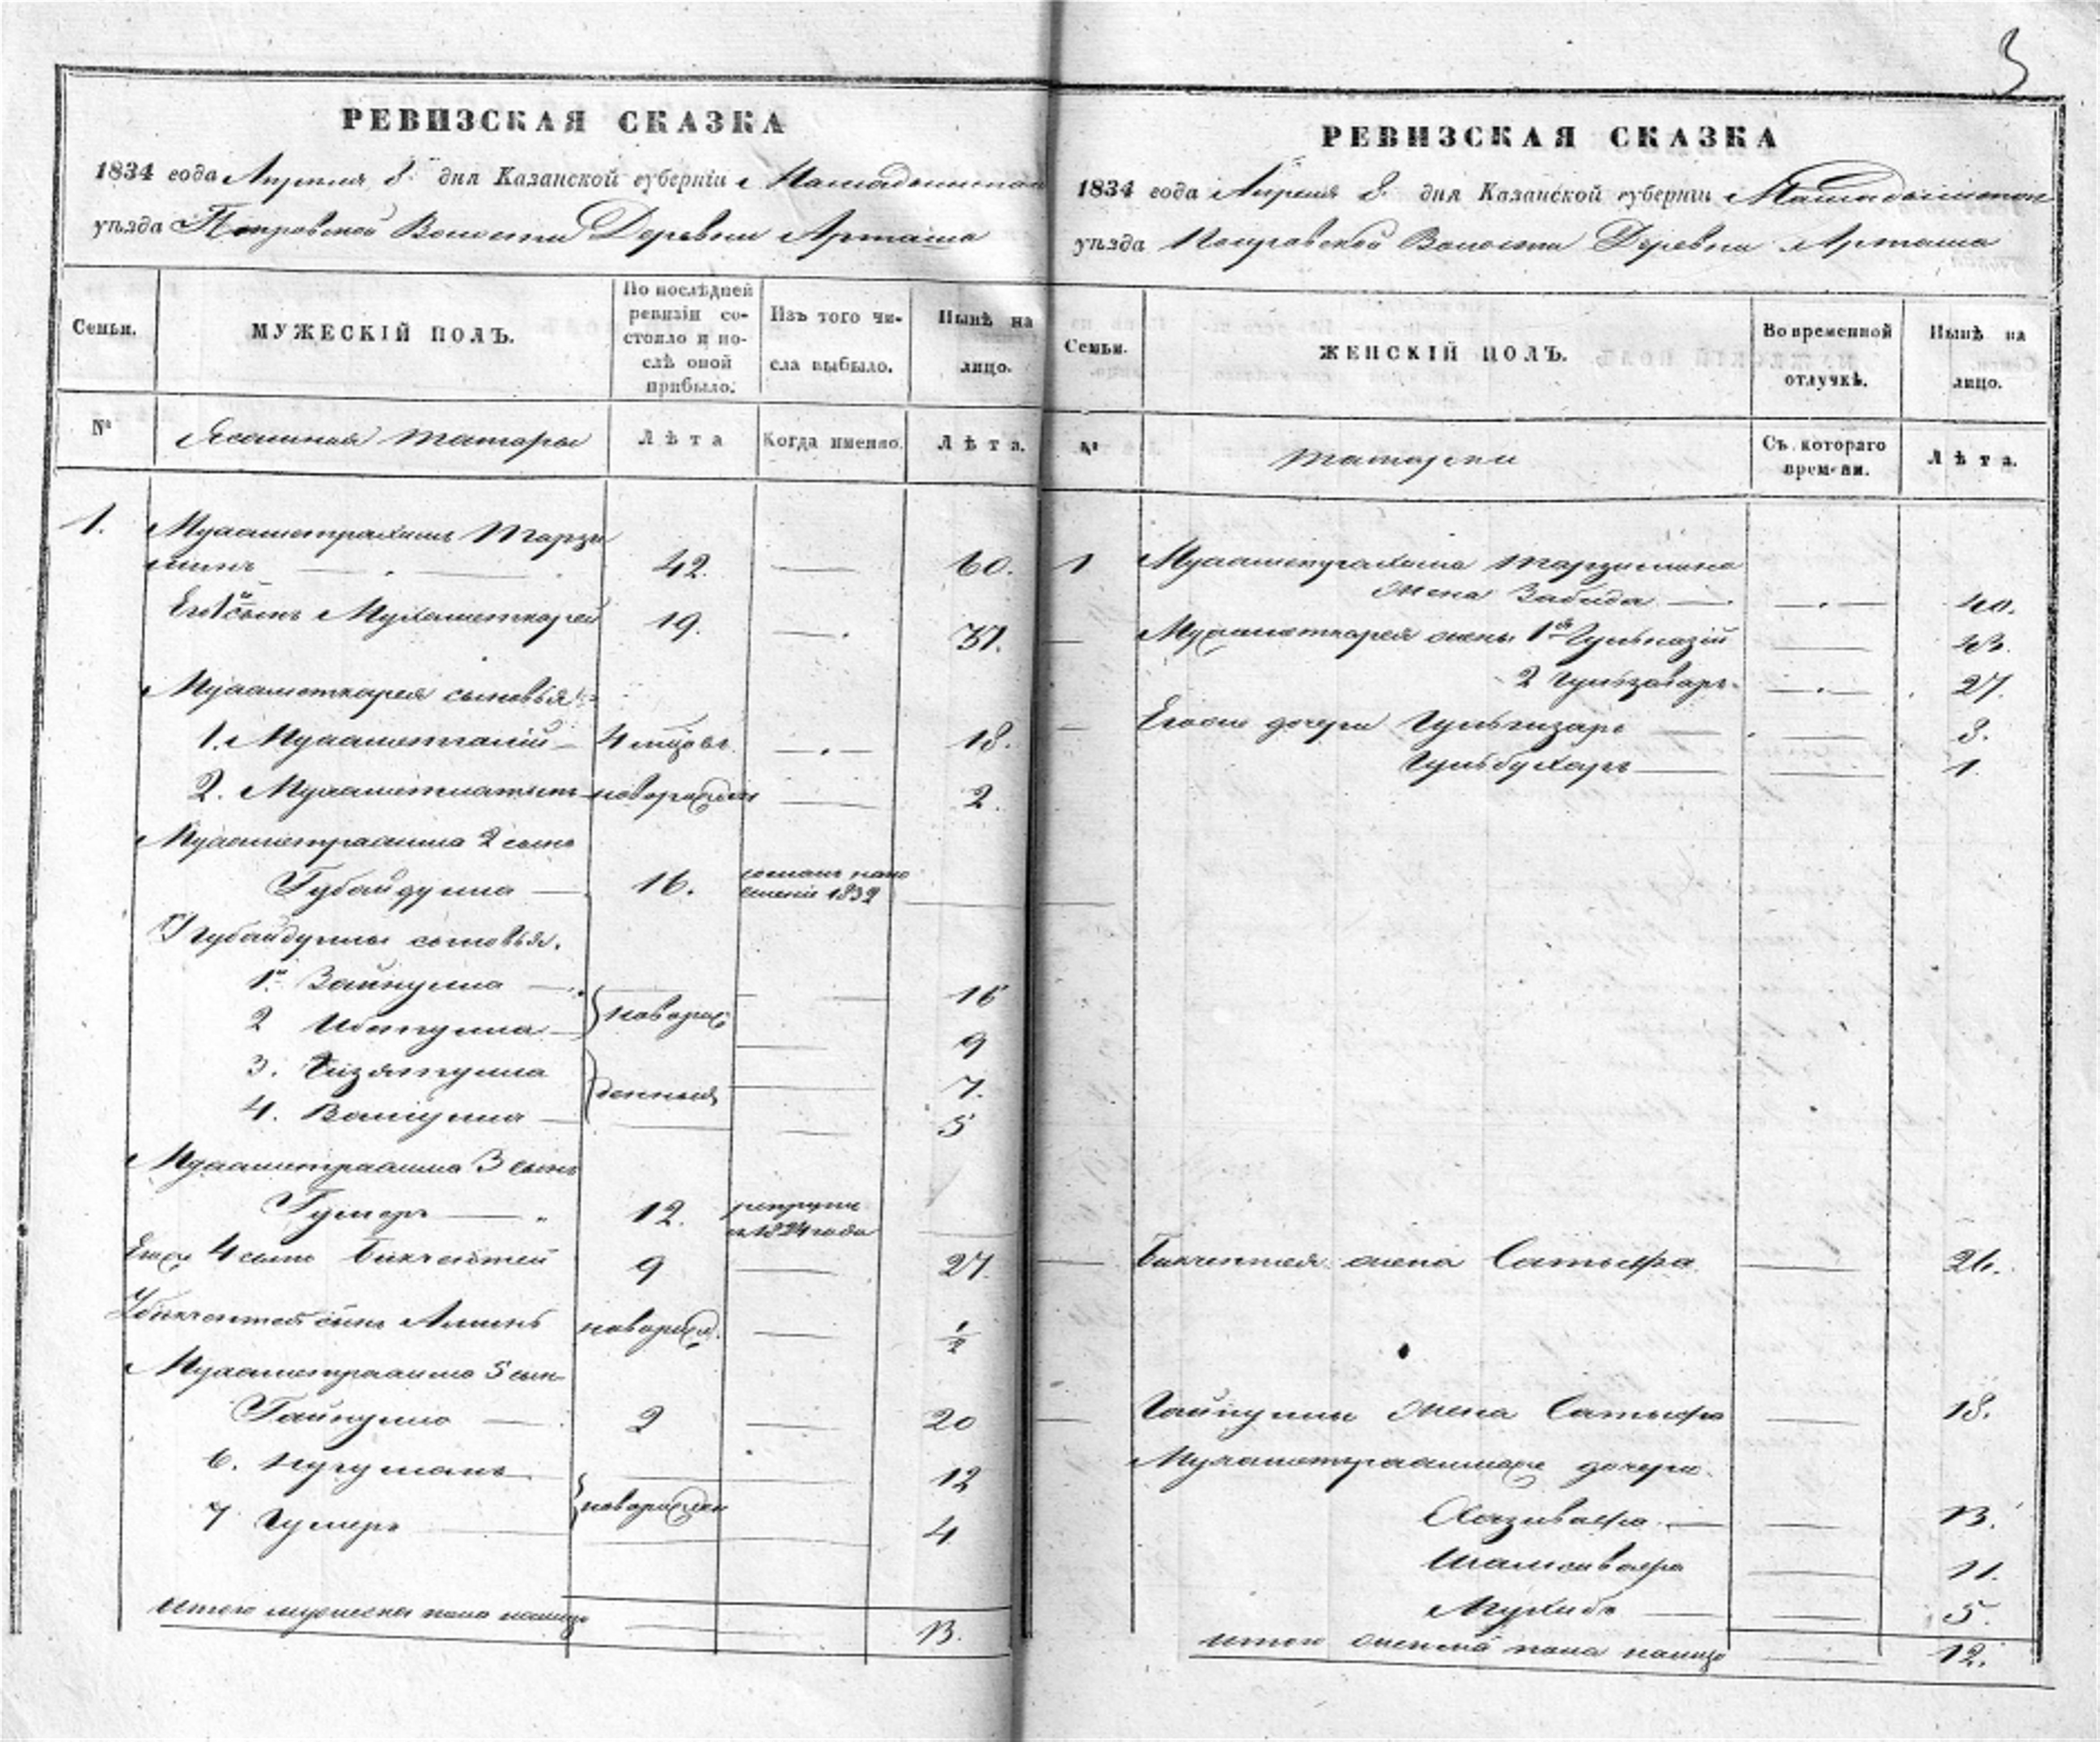 3
РЕВИЗСКАЯ СКАЗКА
1834 года Апреля 8 дня Казанской губерніи Мамадышскаго
уѣзда Петровской Волости Деревни Арташа
Семьи.
МУЖЕСКІЙ ПОЛЪ.
По послѣдней
ревизіи со-
стояло и по-
слѣ оной
прибыло.
Изъ того чи-
сла выбыло.
Нынѣ на
лицо.
№
Ясашныя татары
Лѣта
Когда именно.
Лѣта.
1. Мухаметрахимъ Тарзи
минъ 42. 60.
Его 1й сынъ Мухаметкарей 19. 37.
Мухаметкарея сыновья
1. Мухаметгалій 4 18.
2. Мухаметлатыпъ новорожден 2.
Мухаметрахима 2 сынъ
Губайдулла 16. 1832
Губайдуллы сыновья.
1й Зайнулла 16
2 Ибетулла новорож 9
3. Гизятулла 7.
4. Валіулла денныя 5
Мухаметрахима 3 сынъ
Гумеръ 12. рекруты
в 1824 года
Егоже 4 сынъ Бикчентей 9 27.
У Бикчентея сынъ Аминъ новорожд. 1/2
Мухаметрахима 5 сын
Гайнулла 2 20
6. Нугуманъ 12
7 Гумеръ новорожден 4
Итого мужеска пола налицо 13.
РЕВИЗСКАЯ СКАЗКА
1834 года Апреля 8 дня Казанской губерніи Мамадышскаго
уѣзда Петровской Волости Деревни Арташа
Семьи.
ЖЕНСКІЙ ПОЛЪ.
Во временной
отлучкѣ.
Нынѣ на
лицо.
№
татарки
Съ котораго
времени.
Лѣта.
1 Мухаметрахима Тарзимина
жена Забида 40.
Мухаметкарея жены 1я 43.
2 27.
Егоже дочери 3.
Гульбухаръ 1.
Бикчентея жена Сатыфа 26.
Гайнуллы жена Сатыфа 18.
Мухаметрахима дочери.
13.
11.
5.
Итого женска пола налицо 12.